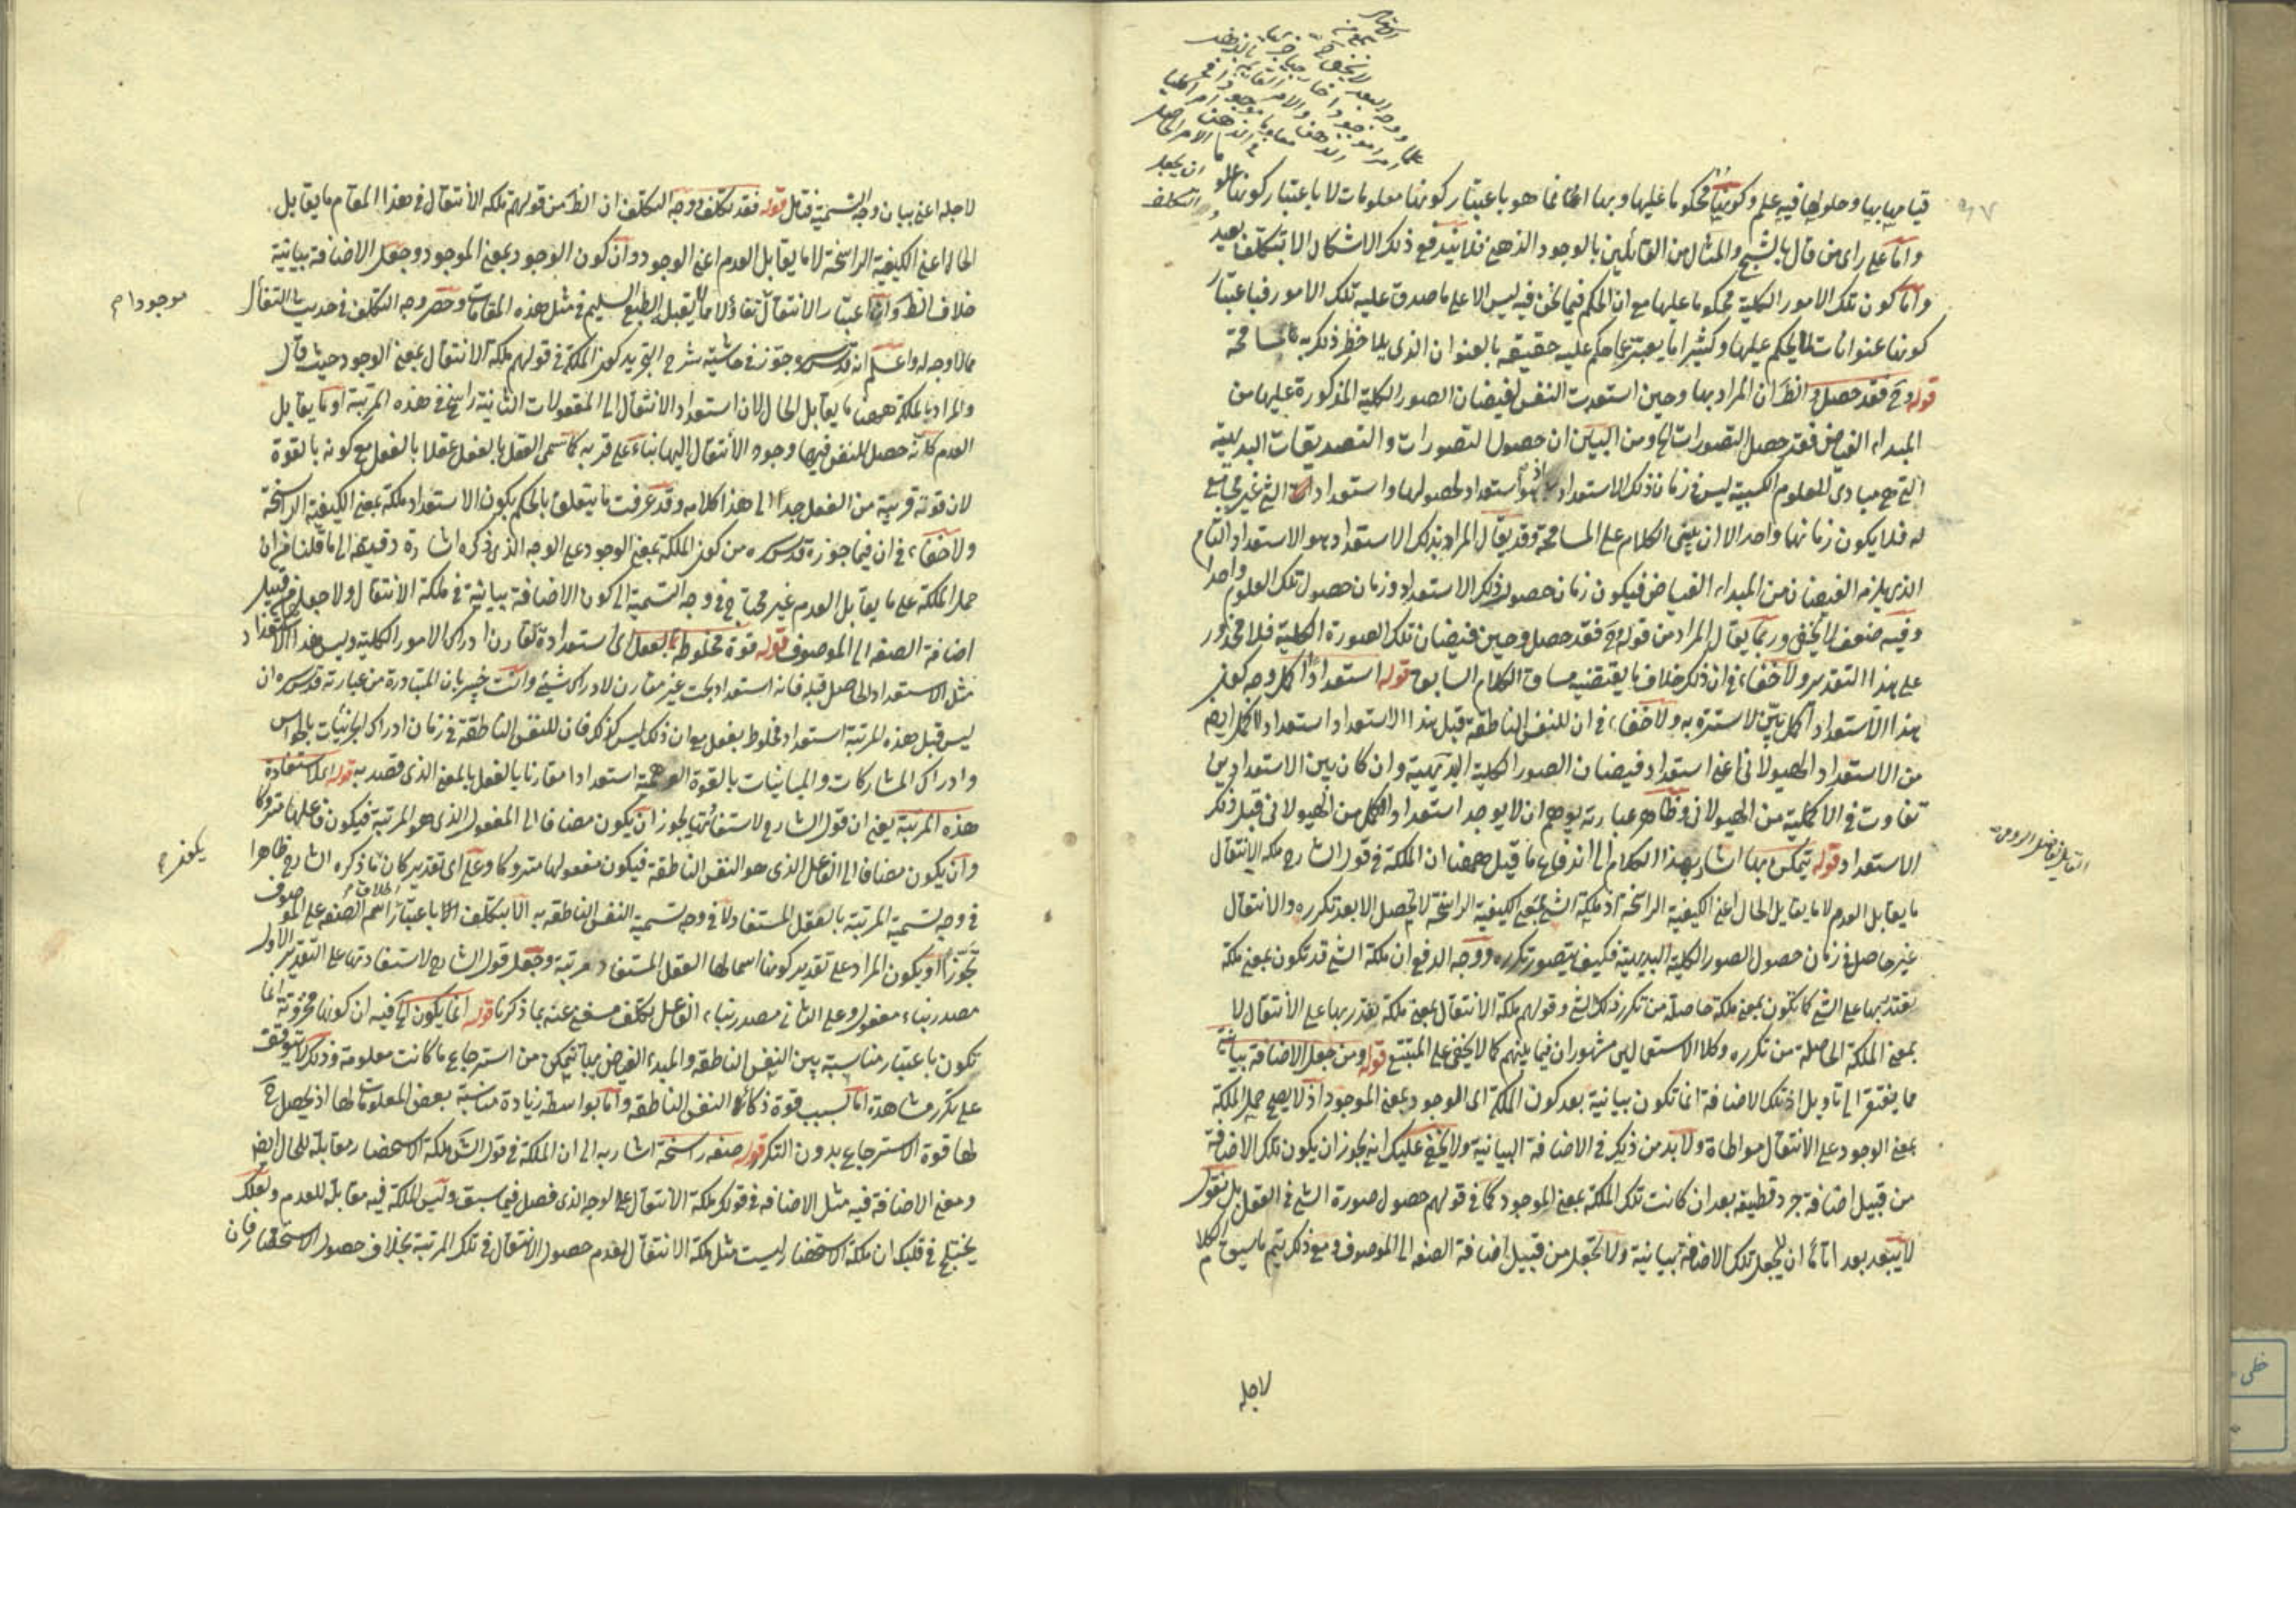 قيامها بها وحلولها فيه علم وكونها محكوما عليها وبها انما هو باعتبار كونها معلومات لا باعتبار كونها علوما
واما على راى من قال بالشبح والمثال من القائلين بالوجود الذهنى فلا يندفع ذلك الاشكال الا بتكلف بعيد
واما كون تلك الامور الكلية محكوما عليها مع ان الحكم فيما نحن فيه ليس الا على ما صدق عليه تلك الامور فباعتبار
كونها عنوانات لما يحكم عليها وكثيرا ما يعبر عما حكم عليه حقيقة بالعنوان الذى يلاحظ ذكر به مسامحة
قوله وح فقد حصل الظ ان المراد بها وحين استعدت النفس لفيضان الصور الكلية المذكورة عليها من
المبداء الفياض فقد حصل التصورات الخ ومن البين ان حصول التصورات والتصديقات البديهية
التى هى مبادى العلوم الكسبية ليس فى زمان ذلك الاستعداد اذ هو استعداد لحصولها واستعداد الشئ غير مجامع
له فلا يكون زمانهما واحدا الا ان يبنى الكلام على المسامحة وقد يقال المراد بذلك الاستعداد هو الاستعداد التام
الذى يلزمه الفيضان من المبداء الفياض فيكون زمان حصول ذلك الاستعداد وزمان حصول تلك العلوم واحدا
وفيه ضعف لا يخفى وربما يقال المراد من قوله وح فقد حصل وحين فيضان تلك الصورة الكلية فلا محذور
على هذا التقدير ولا خفاء فى ان ذكر خلاف ما يقتضيه مساق الكلام السابق قوله استعدادا اكمل وجه كون
هذا الاستعداد اكمل بين لا سترة به ولا خفاء فى ان للنفس الناطقة قبل هذا الاستعداد استعدادا اكمل ايضا
من الاستعداد الهيولانى اعنى استعداد فيضان الصور الكلية البديهية وان كان بين الاستعدادين
تفاوت فى الاكملية من الهيولانى وظاهر عبارته يوهم ان لا يوجد استعداد اكمل من الهيولانى قبل ذلك
الاستعداد قوله تتمكن بها اشار بهذا الكلام الى اندفاع ما قيل ههنا ان الملكة فى قول الشارح ملكة الانتقال
ما يقابل العدم لا ما يقابل الحال اعنى الكيفية الراسخة اذ ملكة الشئ بمعنى كيفية الراسخة لا تحصل الا بعد تكرره والانتقال
غير حاصل فى زمان حصول الصور الكلية البديهية فكيف يتصور تكرره ووجه الدفع ان ملكة الشئ قد تكون بمعنى ملكة
يقتدر بها على الشئ كما تكون بمعنى ملكة حاصلة من تكرر ذلك الشئ وقولهم ملكة الانتقال بمعنى ملكة يقتدر بها على الانتقال لا
بمعنى الملكة الحاصلة من تكرره وكلا الاستعمالين مشهوران فيما بينهم كما لا يخفى على المتتبع قوله ومن جعل الاضافة بيانية
مما يفتقر الى تاويل اذ تلك الاضافة انما تكون بيانية بعد كون الملكة اى الوجود بمعنى الموجود اذ لا يصح حمل الملكة
بمعنى الوجود على الانتقال مواطاة ولا بد من ذلك فى الاضافة البيانية ولا يخفى عليك انه يجوز ان يكون تلك الاضافة
من قبيل اضافة جرد قطيفة بعد ان كانت تلك الملكة بمعنى الموجود كما فى قولهم حصول صورة الشئ فى العقل بل نقول
لا يبعد بعد اتمام ان لا يجعل تلك الاضافة بيانية ولا تجعل من قبيل اضافة الصفة الى الموصوف ومع ذلك يتم ما سيق الكلام
لاجله
القائل الفاضل الرومى
لاجله اعنى بيان وجه التسمية فتامل قوله فقد تكلف وجه التكلف ان الظ من قولهم ملكة الانتقال فى هذا المقام ما يقابل
الحال اعنى الكيفية الراسخة لا ما يقابل العدم اعنى الوجود وان كون الوجود بمعنى الموجود وجعل الاضافة بيانية
خلاف الظ وان اعتبار الانتقال تفاؤلا مما لا يقبل الطبع السليم فى مثل هذه المقامات وحصر وجه التكلف فى حديث التفأل
مما لا وجه له واعلم انه قدس سره جوز فى حاشية شرح التجريد كون الملكة فى قولهم ملكة الانتقال بمعنى الوجود حيث قال
والمراد بالملكة ههنا ما يقابل الحال لان استعداد الانتقال الى المعقولات الثانية راسخ فى هذه المرتبة او ما يقابل
العدم كانه حصل للنفس فيها وجود الانتقال اليها بناء على قربه كما سمى العقل بالفعل عقلا بالفعل مع كونه بالقوة
لان قوته قريبة من الفعل جدا الى هذا كلامه وقد عرفت ما يتعلق بالحكم بكون الاستعداد ملكة بمعنى الكيفية الراسخة
ولا خفاء فى ان فيما جوزه قدس سره من كون الملكة بمعنى الوجود على الوجه الذى ذكره اشارة دقيقة الى ما قلنا من ان
حمل الملكة على ما يقابل العدم غير محتاج فى وجه التسمية الى كون الاضافة بيانية فى ملكة الانتقال ولا جعلها من قبيل
اضافة الصفة الى الموصوف قوله قوة مخلوطة بالفعل اى استعدادة تقارن ادراك الامور الكلية وليس هذا الاستعداد
مثل الاستعداد الحاصل قبله فانه استعداد بحت غير مقارن لادراك شئ وانت خبير بان المتبادرة من عبارته قدس سره ان
ليس قبل هذه المرتبة استعداد مخلوط بفعل مع ان ذلك ليس كذلك فان للنفس الناطقة فى زمان ادراك الجزئيات بالحواس
وادراك المشاركات والمباينات بالقوة الوهمية استعدادا مقارنا بالفعل بالمعنى الذى قصد به قوله لاستفادة
هذه المرتبة يعنى ان قول الشارح لاستفادتها يجوز ان يكون مضافا الى المفعول الذى هو المرتبة فيكون فاعلها متروكا
وان يكون مضافا الى الفاعل الذى هو النفس الناطقة فيكون مفعولها متروكا وعلى اى تقدير كان ما ذكره الشارح ظاهرا
فى وجه تسمية المرتبة بالعقل المستفاد لا فى وجه تسمية النفس الناطقة به الا بتكلف الا باعتبار اطلاق اسم الصفة على الموصوف
تجوزا او يكون المراد على تقدير كونها اسما لها العقل المستفاد مرتبة وجعل قول الشارح لاستفادتها على التقدير الاول
مصدر بناء مفعول وعلى الثانى مصدر بناء الفاعل تكلف مستغنى عنه بما ذكرنا قوله انما يكون الخ فيه ان كونها مخزونة انما
تكون باعتبار مناسبة بين النفس الناطقة والمبدء الفياض بها تتمكن من استرجاع ما كانت معلومة وذلك لا يتوقف
على تكرر مشاهدة اما لسبب قوة ذكاء النفس الناطقة واما بواسطة زيادة مناسبة بعض المعلومات لها اذ يحصل ح
لها قوة الاسترجاع بدون التكرر قوله صفة راسخة اشار به الى ان الملكة فى قول الش ملكة الاستحضار مقابلة للحال ايضا
ومعنى الاضافة فيه مثل الاضافة فى قولك ملكة الانتقال على الوجه الذى فصل فيما سبق وليس الملكة فيه مقابلة للعدم ولعلك
يختلج فى قلبك ان ملكة الاستحضار ليست مثل ملكة الانتقال لعدم حصول الانتقال فى تلك المرتبة بخلاف حصول الاستحضار فان
موجودا م